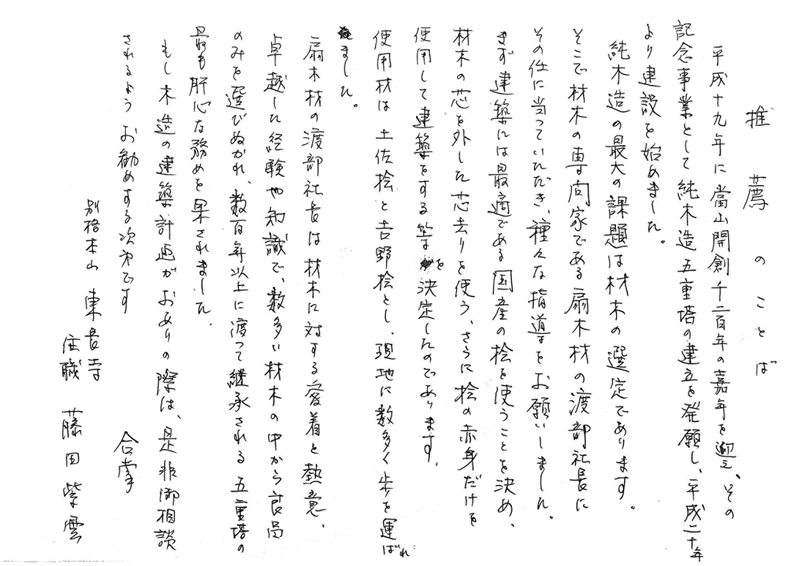 推薦のことば
平成十九年に當山開創千二百年の嘉年を迎え、その
記念事業として純木造五重塔の建立を発願し、平成二十年
より建設を始めました。
純木造の最大の課題は材木の選定であります。
そこで材木の専門家である扇木材の渡部社長に
その任に当っていただき、種々な指導をお願いしました。
まず建築には最適である国産の桧を使うことを決め、
材木の芯を外した芯去りを使う、さらに桧の赤身だけを
使用して建築をする等を決定したのであります。
使用材は土佐桧と吉野桧とし、現地に数多く歩を運ばれ
ました。
扇木材の渡部社長は材木に対する愛着と熱意、
卓越した経験や知識で、数多い材木の中から良品
のみを選びぬかれ、数百年以上に渡って継承される五重塔の
最も肝心な務めを果されました。
もし木造の建築計画がおありの際は、是非御相談
されるようお勧めする次第です
合掌
別格本山 東長寺
住職 藤田紫雲